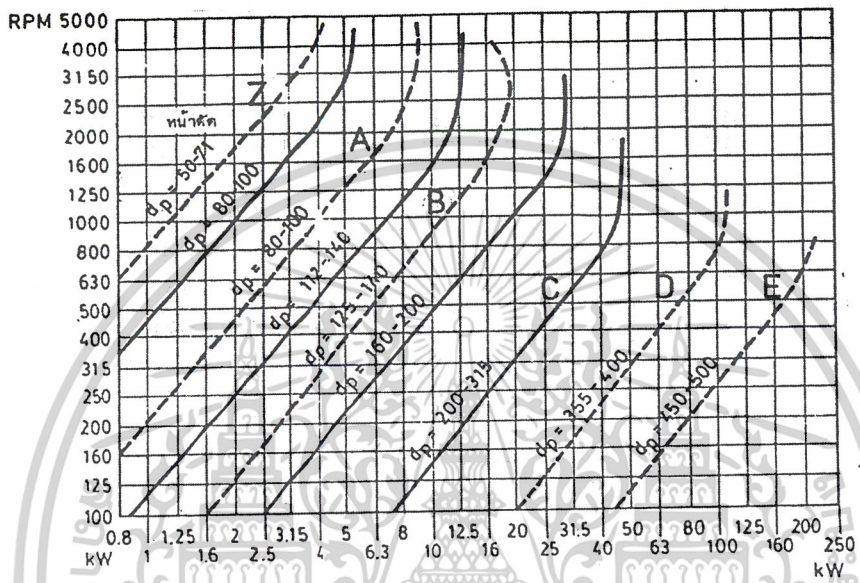 RPM 5000
4000
3150
2500
2000
1600
1250
1000
800
630
500
400
315
250
200
160
125
100
หน้าตัด
Z
A
B
C
D
E
dp = 50-71
dp = 80-100
dp = 80-100
dp = 112-140
dp = 125-170
dp = 160-200
dp = 200-315
dp = 355-400
dp = 450-500
0.8 1.25 2 3.15 5 8 12.5 20 31.5 50 80 125 200
kW 1 1.6 2.5 4 6.3 10 16 25 40 63 100 160 250
kW